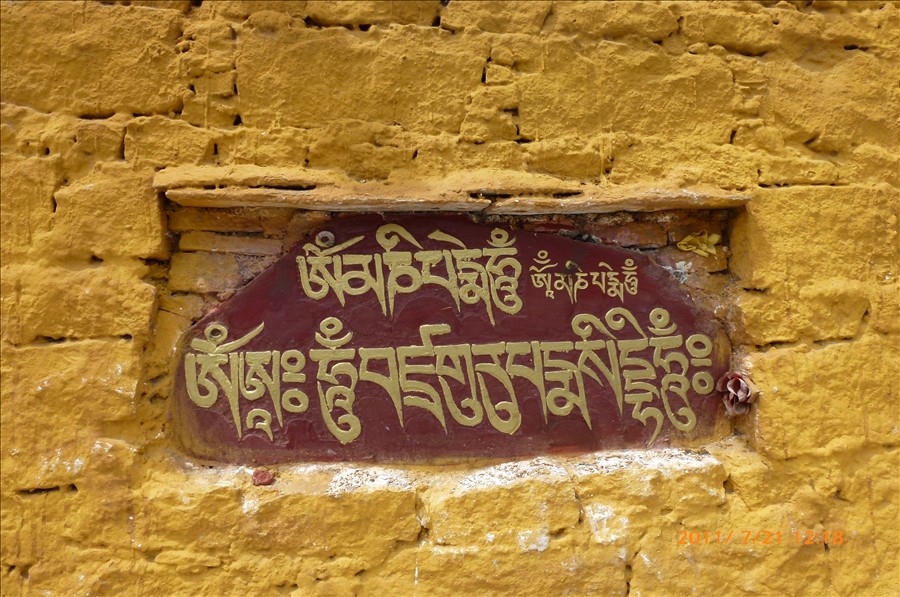 ཨོཾམཎིཔདྨེཧཱུྃ ཨོཾམཎིཔདྨེཧཱུྃ
ཨོཾཨཱཿཧཱུྃབཛྲགུརུཔདྨསིདྡྷིཧཱུྃཿ
2011/ 7/21 12:18